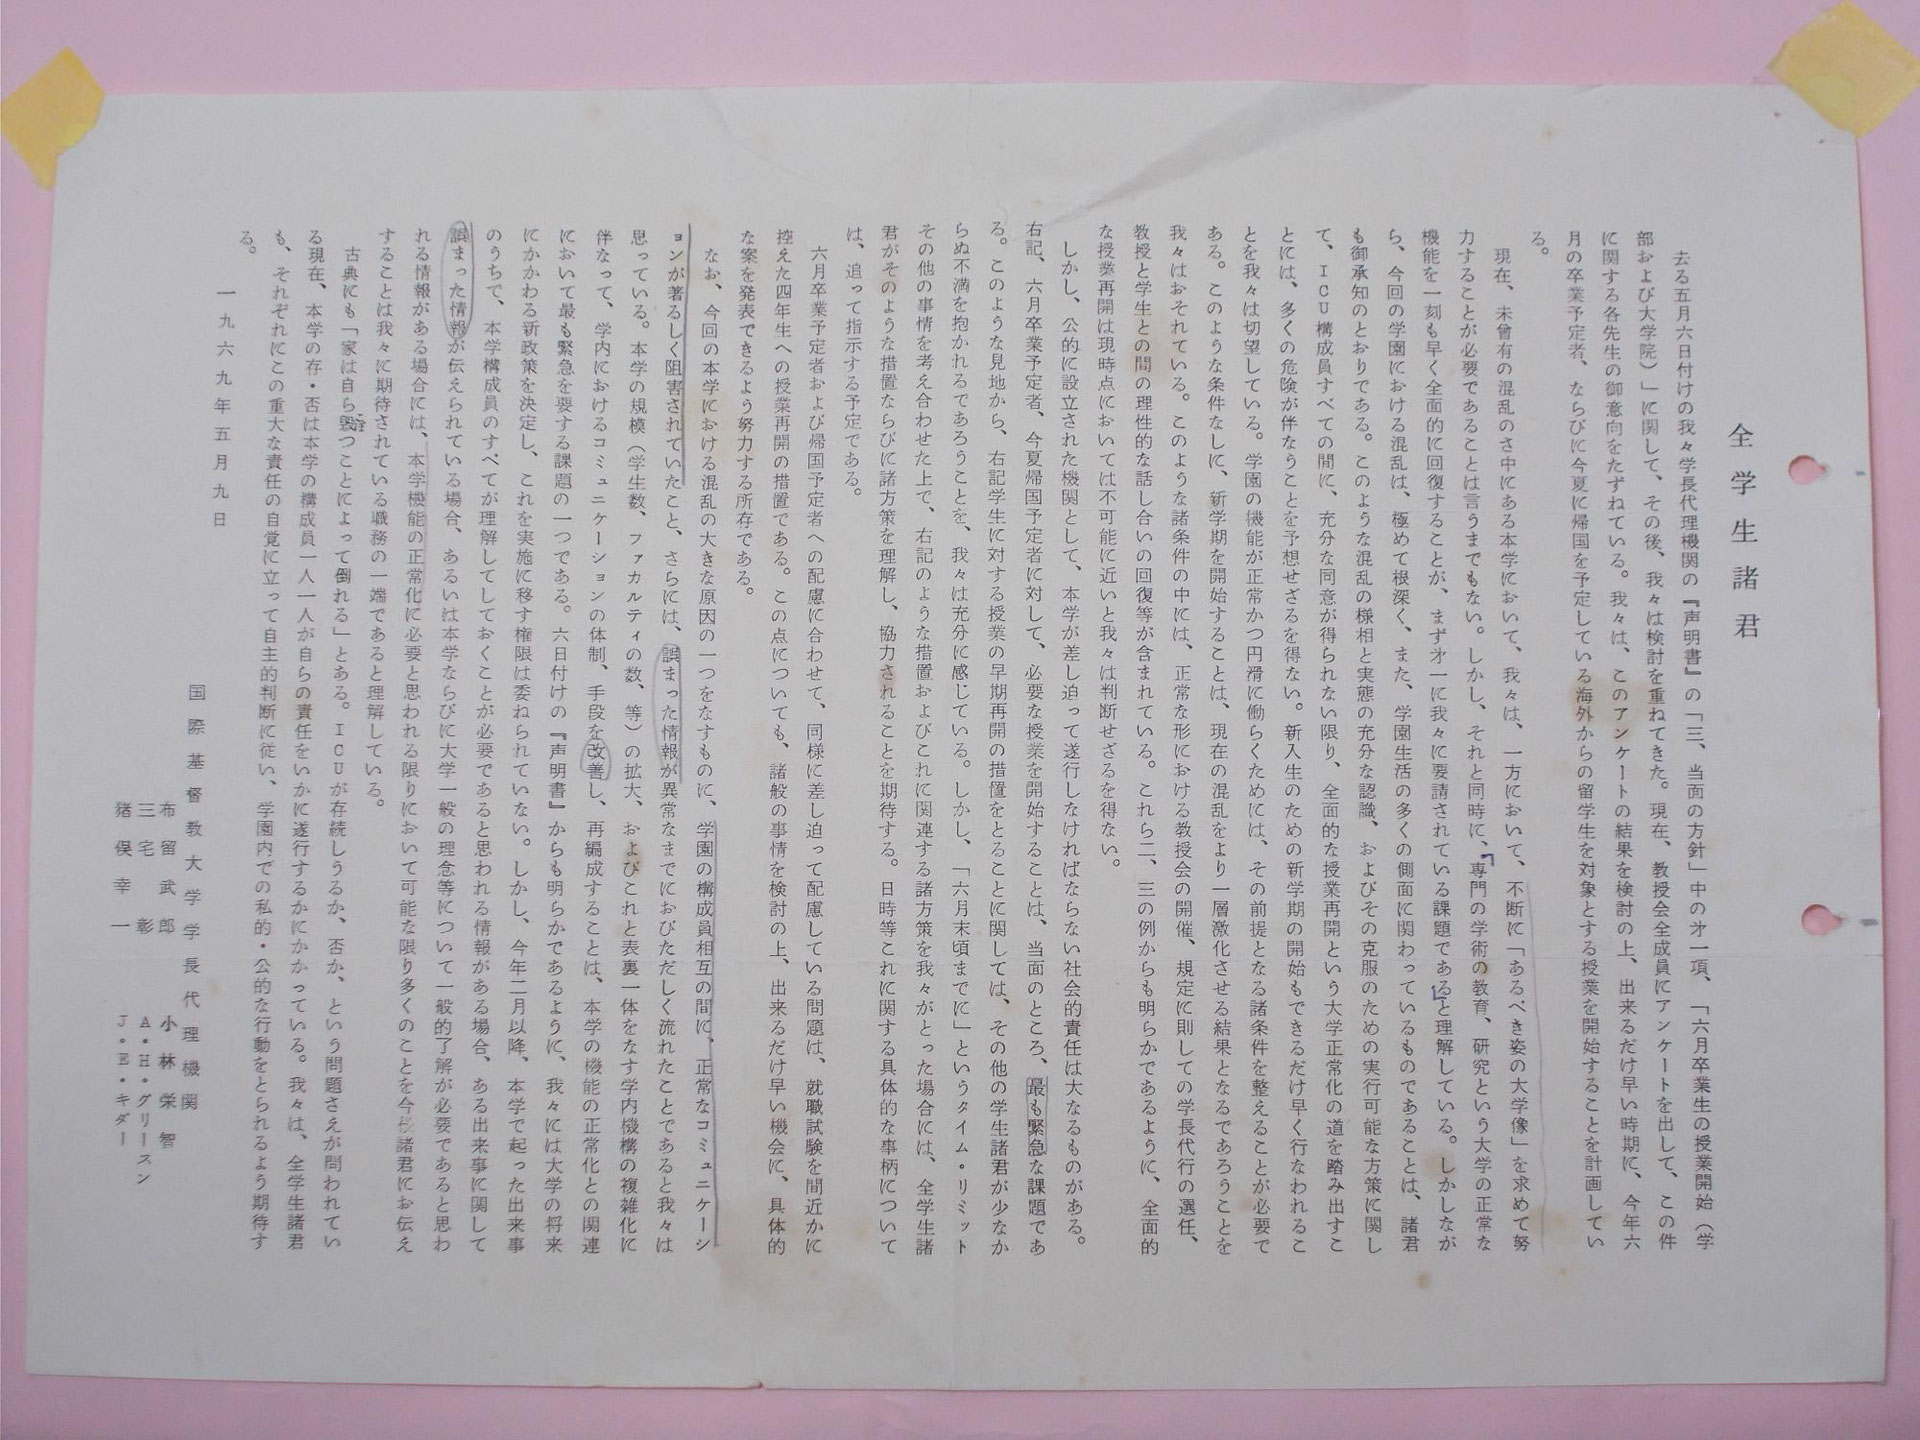 全学生諸君
去る五月六日付けの我々学長代理機関の『声明書』の「三、当面の方針」中の才一項、「六月卒業生の授業開始（学
部および大学院）」に関して、その後、我々は検討を重ねてきた。現在、教授会全成員にアンケートを出して、この件
に関する各先生の御意向をたずねている。我々は、このアンケートの結果を検討の上、出来るだけ早い時期に、今年六
月の卒業予定者、ならびに今夏に帰国を予定している海外からの留学生を対象とする授業を開始することを計画してい
る。
現在、未曾有の混乱のさ中にある本学において、我々は、一方において、不断に「あるべき姿の大学像」を求めて努
力することが必要であることは言うまでもない。しかし、それと同時に、「専門の学術の教育、研究という大学の正常な
機能を一刻も早く全面的に回復することが、まず才一に我々に要請されている課題である」と理解している。しかしなが
ら、今回の学園における混乱は、極めて根深く、また、学園生活の多くの側面に関わっているものであることは、諸君
も御承知のとおりである。このような混乱の様相と実態の充分な認識、およびその克服のための実行可能な方策に関し
て、ICU構成員すべての間に、充分な同意が得られない限り、全面的な授業再開という大学正常化の道を踏み出すこ
とには、多くの危険が伴なうことを予想せざるを得ない。新入生のための新学期の開始もできるだけ早く行なわれるこ
とを我々は切望している。学園の機能が正常かつ円滑に働らくためには、その前提となる諸条件を整えることが必要で
ある。このような条件なしに、新学期を開始することは、現在の混乱をより一層激化させる結果となるであろうことを
我々はおそれている。このような諸条件の中には、正常な形における教授会の開催、規定に則しての学長代行の選任、
教授と学生との間の理性的な話し合いの回復等が含まれている。これら二、三の例からも明らかであるように、全面的
な授業再開は現時点においては不可能に近いと我々は判断せざるを得ない。
しかし、公的に設立された機関として、本学が差し迫って遂行しなければならない社会的責任は大なるものがある。
右記、六月卒業予定者、今夏帰国予定者に対して、必要な授業を開始することは、当面のところ、最も緊急な課題であ
る。このような見地から、右記学生に対する授業の早期再開の措置をとることに関しては、その他の学生諸君が少なか
らぬ不満を抱かれるであろうことを、我々は充分に感じている。しかし、「六月末頃までに」というタイム・リミット
その他の事情を考え合わせた上で、右記のような措置およびこれに関連する諸方策を我々がとった場合には、全学生諸
君がそのような措置ならびに諸方策を理解し、協力されることを期待する。日時等これに関する具体的な事柄について
は、追って指示する予定である。
六月卒業予定者および帰国予定者への配慮に合わせて、同様に差し迫って配慮している問題は、就職試験を間近かに
控えた四年生への授業再開の措置である。この点についても、諸般の事情を検討の上、出来るだけ早い機会に、具体的
な案を発表できるよう努力する所存である。
なお、今回の本学における混乱の大きな原因の一つをなすものに、学園の構成員相互の間に、正常なコミュニケーシ
ョンが著るしく阻害されていたこと、さらには、誤まった情報が異常なまでにおびただしく流れたことであると我々は
思っている。本学の規模（学生数、ファカルティの数、等）の拡大、およびこれと表裏一体をなす学内機構の複雑化に
伴なって、学内におけるコミュニケーションの体制、手段を改善し、再編成することは、本学の機能の正常化との関連
において最も緊急を要する課題の一つである。六日付けの『声明書』からも明らかであるように、我々には大学の将来
にかかわる新政策を決定し、これを実施に移す権限は委ねられていない。しかし、今年二月以降、本学で起った出来事
のうちで、本学構成員のすべてが理解してしておくことが必要であると思われる情報がある場合、ある出来事に関して
誤まった情報が伝えられている場合、あるいは本学ならびに大学一般の理念等について一般的了解が必要であると思わ
れる情報がある場合には、本学機能の正常化に必要と思われる限りにおいて可能な限り多くのことを今後諸君にお伝え
することは我々に期待されている職務の一端であると理解している。
古典にも「家は自ら毀つことによって倒れる」とある。ICUが存続しうるか、否か、という問題さえが問われてい
る現在、本学の存・否は本学の構成員一人一人が自らの責任をいかに遂行するかにかかっている。我々は、全学生諸君
も、それぞれにこの重大な責任の自覚に立って自主的判断に従い、学園内での私的・公的な行動をとられるよう期待す
る。
一九六九年五月九日
国際基督教大学学長代理機関
布留武郎　小林栄智
三宅彰　A・H・グリースン
猪俣幸一　J・E・キダー